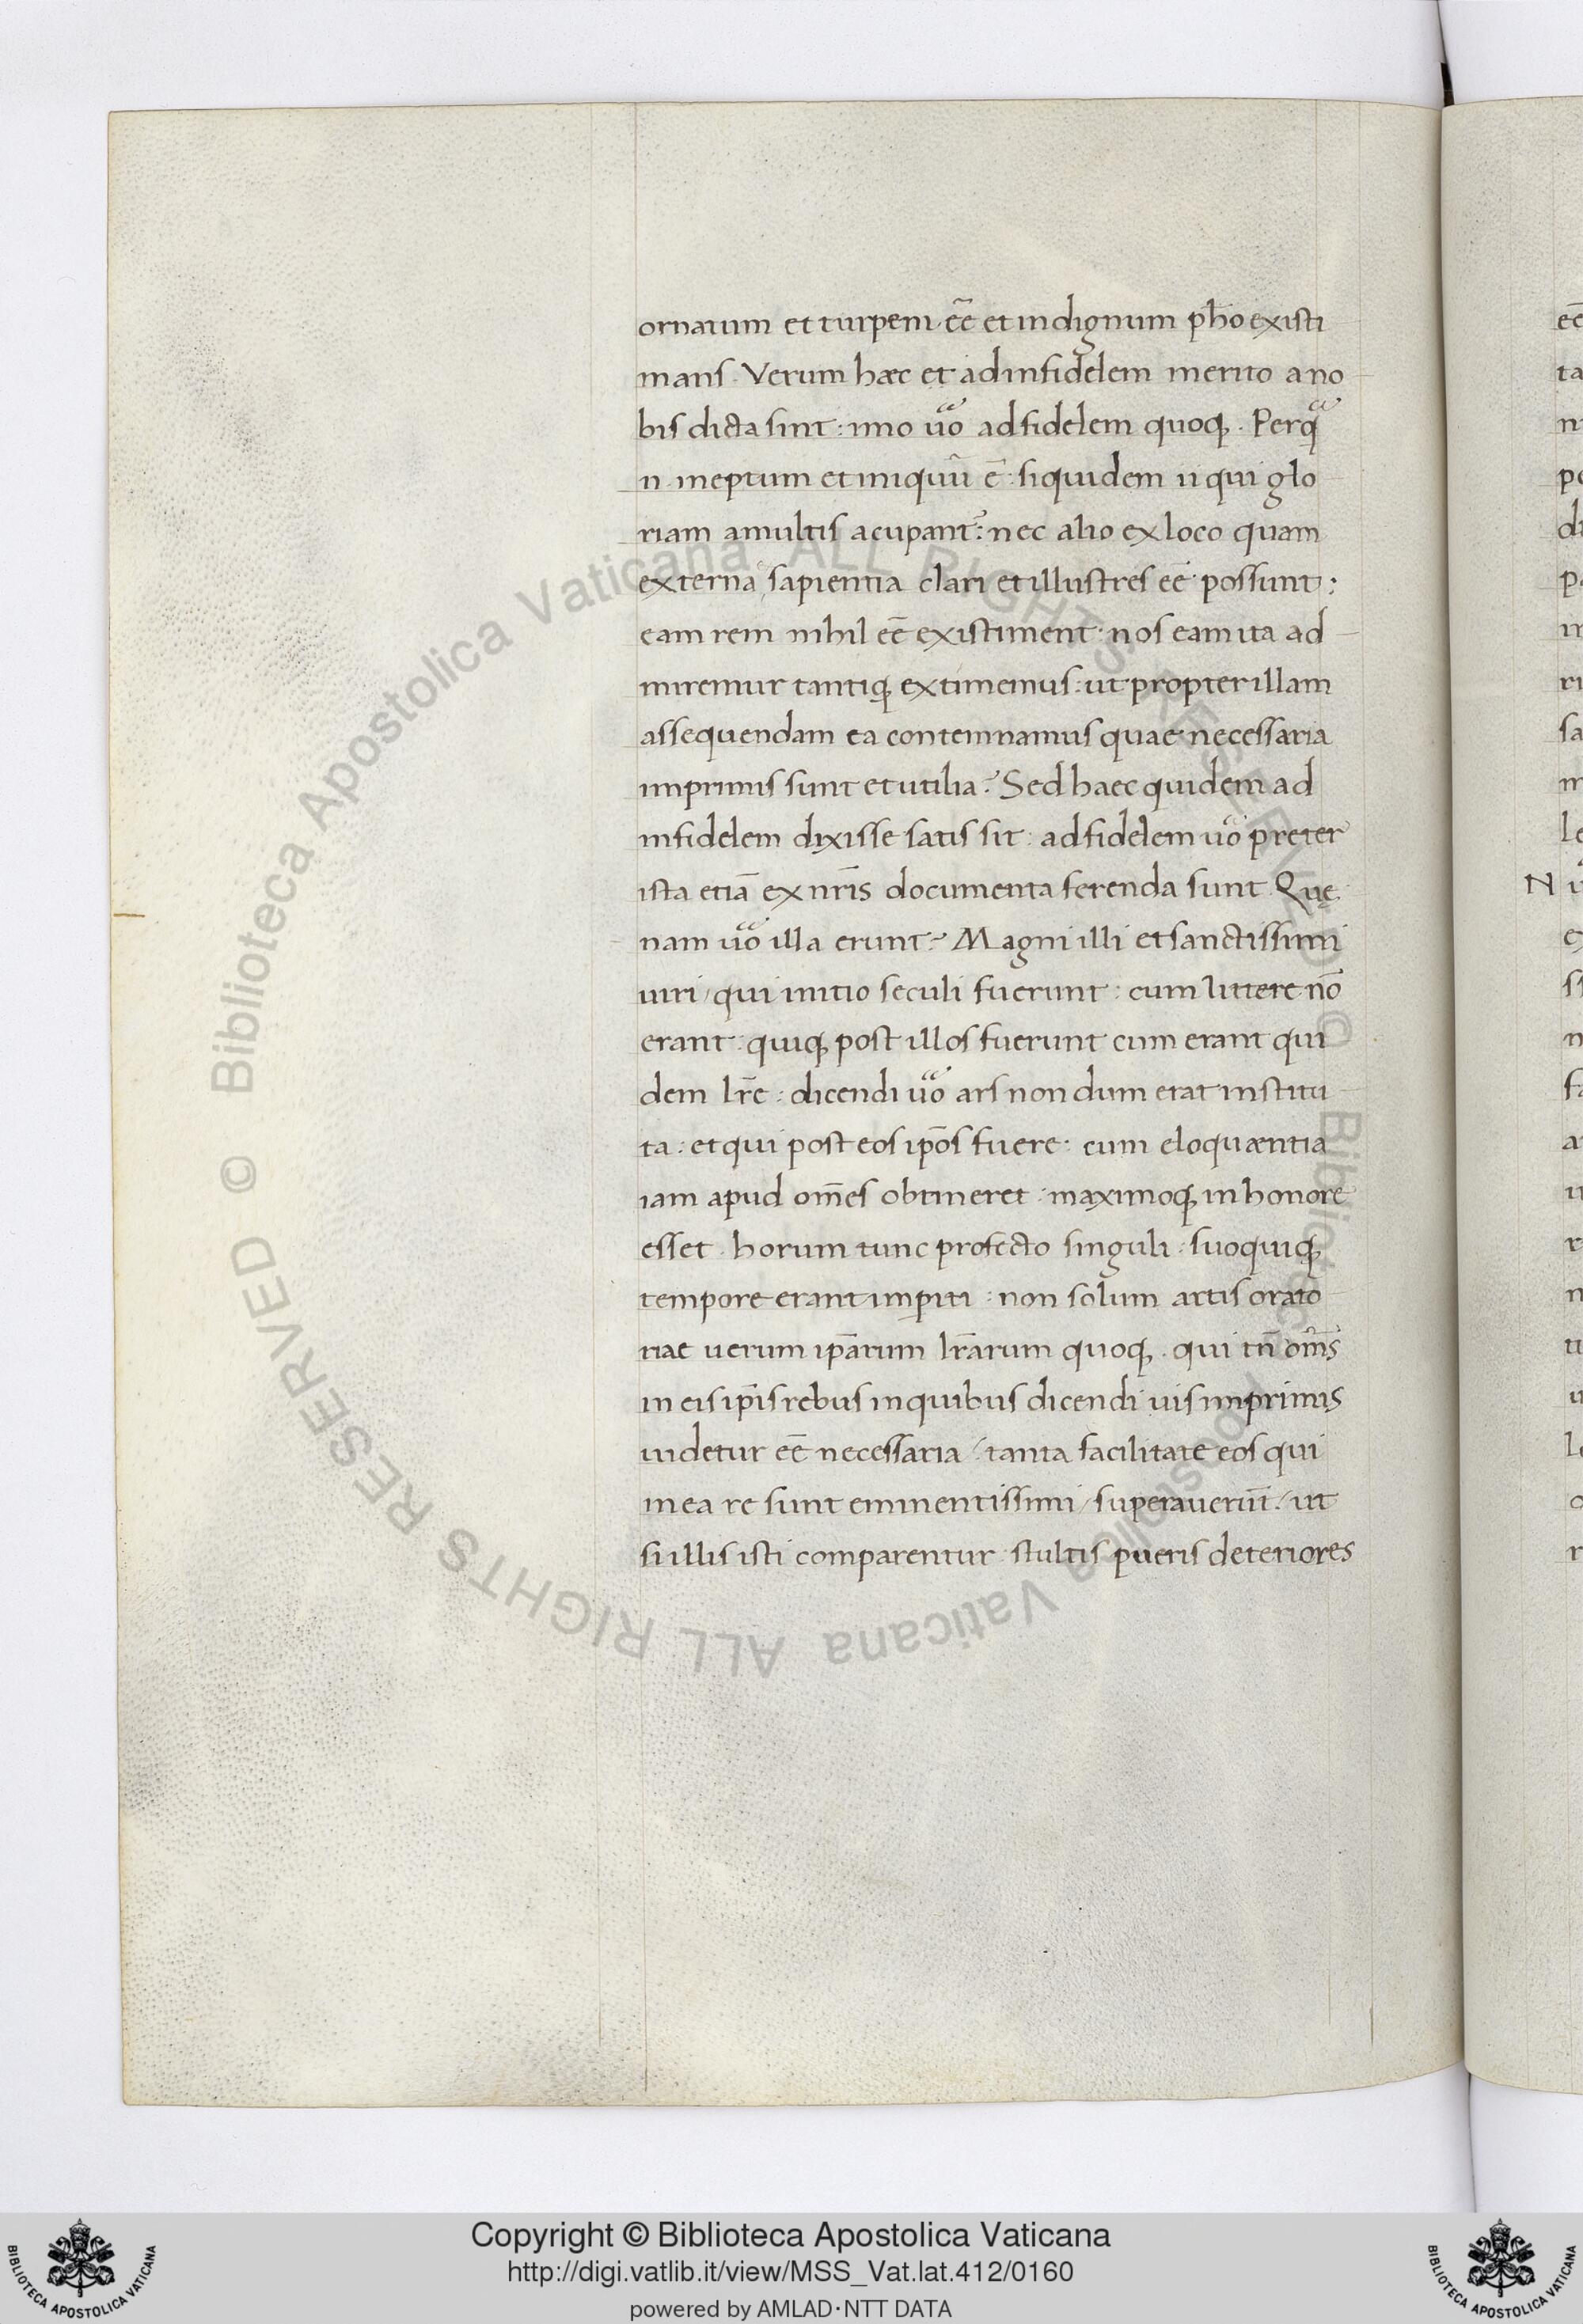 ornatum et turpem eē et indignum pħo existi
mans. Verum haec et ad infidelem merito a no
bis dicta sint: imo uͣo ad fidelem quoqꝫ. Perqͣ
n ineptum et iniquū ē: siquidem ii qui glo
riam a multis acupant: nec alio ex loco quam
externa sapientia clari et illustres eē possunt:
eam rem nihil eē existiment: nos eam ita ad
miremur tantiqꝫ extimemus: ut propter illam
assequendam ea contemnamus quae necessaria
imprimis sunt et utilia? Sed haec quidem ad
infidelem dixisse satis sit: ad fidelem uͣo preter
ista etiā ex nr̄is documenta ferenda sunt. Quę
nam uͣo illa erunt? Magni illi et sanctissimi
uiri, qui initio seculi fuerunt: cum littere nō
erant: quiqꝫ post illos fuerunt cum erant qui
dem lr̄e: dicendi uͣo ars non dum erat institu
ta: et qui post eos ip̄os fuere: cum eloquaentia
iam apud om̄es obtineret: maximoqꝫ in honore
esset. horum tunc profecto singuli: suo quiqꝫ
tempore erant impiti: non solum artis orato
riae uerum ip̄arum lr̄arum quoqꝫ. qui tn̄ om̄s
in eis ip̄is rebus in quibus dicendi uis imprimis
uidetur eē necessaria: tanta facilitate eos qui
in ea re sunt eminentissimi, superauerūt: ut
si illis isti comparentur stultis pueris deteriores
N
© Biblioteca Apostolica Vaticana ALL RIGHTS RESERVED
© Biblioteca Apostolica Vaticana ALL RIGHTS RESERVED
BIBLIOTECA APOSTOLICA VATICANA
Copyright © Biblioteca Apostolica Vaticana
http://digi.vatlib.it/view/MSS_Vat.lat.412/0160
powered by AMLAD·NTT DATA
BIBLIOTECA APOSTOLICA VATICANA